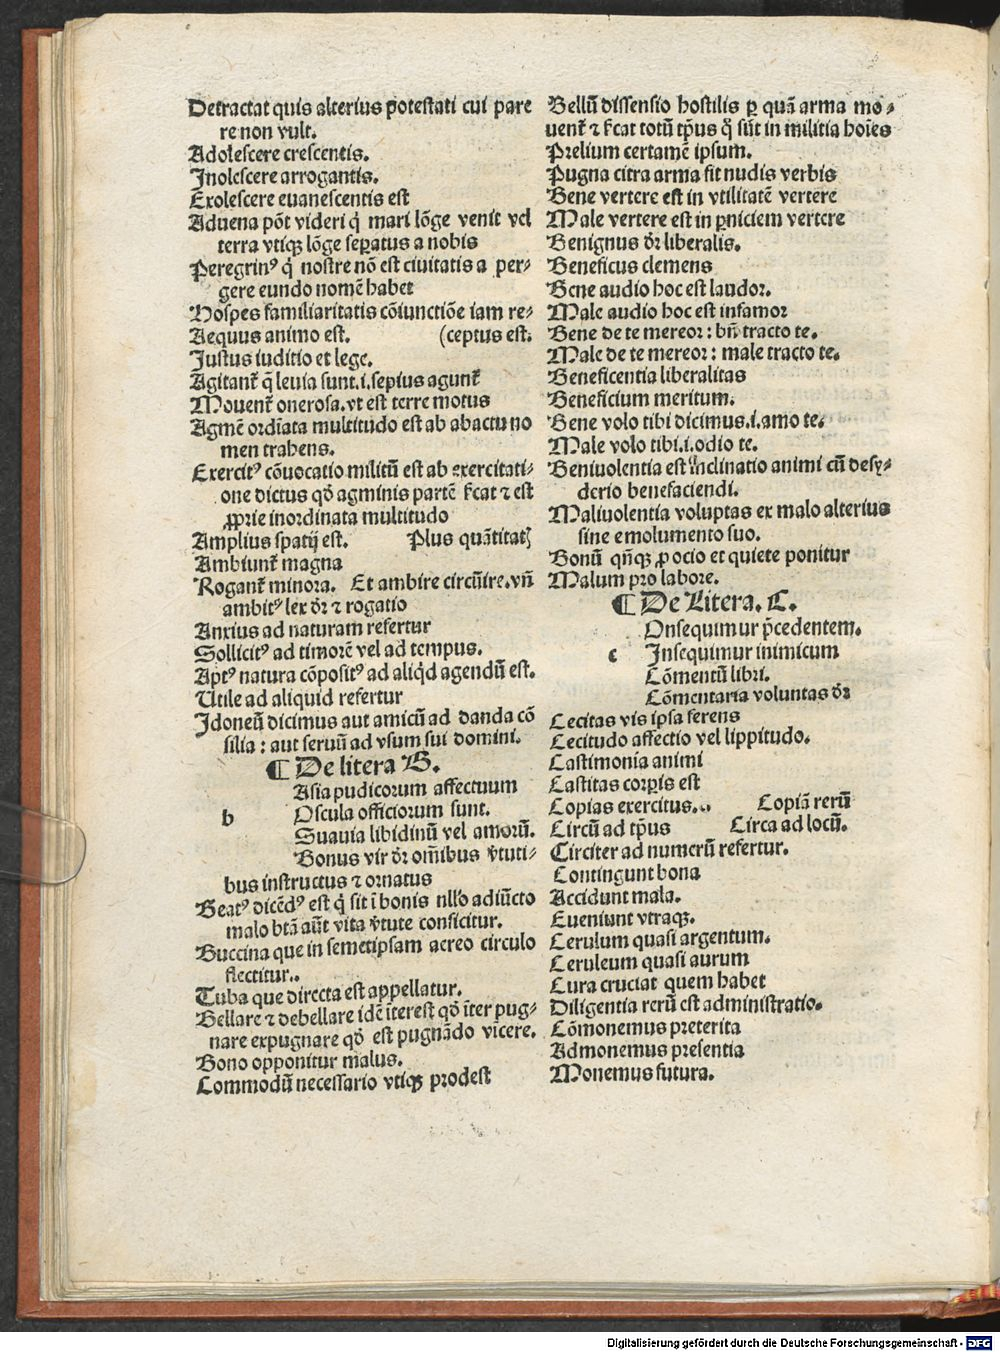 Detractat quis alterius potestati cui pare
re non vult.
Adolescere crescentis.
Inolescere arrogantis.
Exolescere euanescentis est
Aduena põt videri q̃ mari lõge venit vel
terra vtiqꝫ lõge seꝑatus a nobis
Peregrinꝰ q̃ nostre nõ est ciuitatis a per⸗
gere eundo nomẽ habet
Hospes familiaritatis cõiunctiõe iam re⸗
Aequus animo est. (ceptus est.
Justus iuditio et lege.
Agitant᷑ q̃ leuia sunt.i.sepius agunt᷑
Mouent᷑ onerosa.vt est terre motus
Agmẽ ordĩata multitudo est ab abactu no
men trahens.
Exercitꝰ cõuocatio militũ est ab exercitati⸗
one dictus qđ agminis partẽ ẜcat ⁊ est
ꝓprie inordinata multitudo
Amplius spatij est. Plus quãtitatꝭ
Ambiunt᷑ magna
Rogant᷑ minora. Et ambire circũire.vñ
ambitꝰ lex đr ⁊ rogatio
Anxius ad naturam refertur
Sollicitꝰ ad timorẽ vel ad tempus.
Aptꝰ natura cõpositꝰ ad aliqđ agendũ est.
Utile ad aliquid refertur
Idoneũ dicimus aut amicũ ad danda cõ
silia : aut seruũ ad vsum sui domini.
¶ De litera B.
Asia pudicorum affectuum
b Oscula officiorum sunt.
Suauia libidinũ vel amorũ.
Bonus vir đr om̃ibus v̾tuti⸗
bus instructus ⁊ ornatus
Beatꝰ dicẽdꝰ est q̃ sit ĩ bonis nll'o adiũcto
malo btã aũt vita v̾tute conficitur.
Buccina que in semetipsam aereo circulo
flectitur..
Tuba que directa est appellatur.
Bellare ⁊ debellare idẽ ĩterest qđ ĩter pug⸗
nare expugnare qđ est pugnãdo vĩcere.
Bono opponitur malus.
Commodũ necessario vtiqꝫ prodest
Bellũ dissensio hostilis ꝑ quã arma mo⸗
uent᷑ ⁊ ẜcat totũ tp̃us q̃ sũt in militia hoĩes
Prelium certamẽ ipsum.
Pugna citra arma fit nudis verbis
Bene vertere est in vtilitatẽ vertere
Male vertere est in ꝑniciem vertere
Benignus đr liberalis.
Beneficus clemens
Bene audio hoc est laudor.
Male audio hoc est infamor
Bene de te mereor : bñ tracto te.
Male de te mereor : male tracto te.
Beneficentia liberalitas
Beneficium meritum.
Bene volo tibi dicimus.i.amo te.
Male volo tibi.i.odio te.
Beniuolentia est inclinatio animi cũ desy⸗
derio benefaciendi.
Maliuolentia voluptas ex malo alterius
sine emolumento suo.
Bonũ qñqꝫ ꝓ ocio et quiete ponitur
Malum pro labore.
¶ De Litera. C.
Onsequimur p̃cedentem.
c Insequimur inimicum
Cõmentũ libri.
Cõmentaria voluntas đr
Cecitas vis ipsa ferens
Cecitudo affectio vel lippitudo.
Castimonia animi
Castitas corꝑis est
Copias exercitus... Copiã rerũ
Circũ ad tp̃us Circa ad locũ.
Circiter ad numerũ refertur.
Contingunt bona
Accidunt mala.
Eueniunt vtraqꝫ.
Cerulum quasi argentum.
Ceruleum quasi aurum
Cura cruciat quem habet
Diligentia rerũ est administratio.
Cõmonemus preterita
Admonemus presentia
Monemus futura.
Digitalisierung gefördert durch die Deutsche Forschungsgemeinschaft - DFG